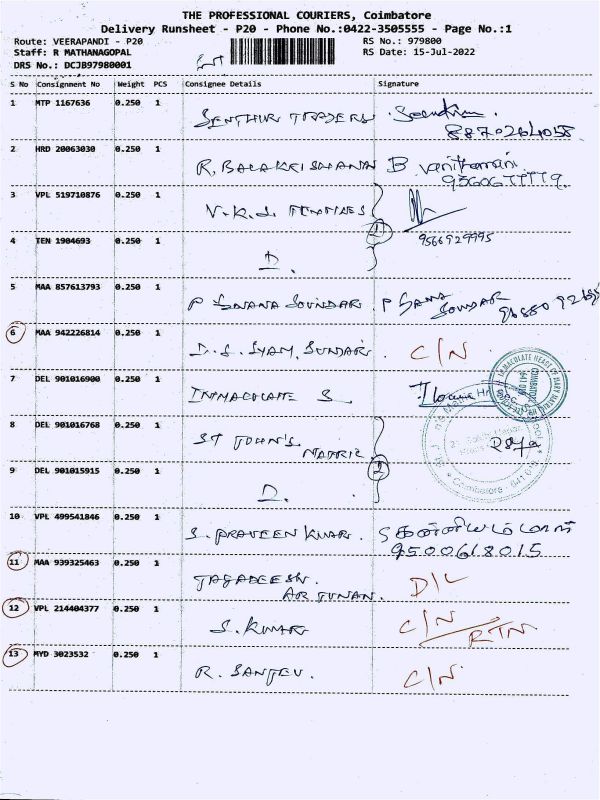 THE PROFESSIONAL COURIERS, Coimbatore
Delivery Runsheet - P20 - Phone No.:0422-3505555 - Page No.:1
Route: VEERAPANDI - P20 RS No.: 979800
Staff: R MATHANAGOPAL RS Date: 15-Jul-2022
DRS No.: DCJB97980001
S No Consignment No Weight PCS Consignee Details Signature
1 MTP 1167636 0.250 1
SENTHUR TRADERS
8870264058
2 HRD 20063030 0.250 1
R. BALAKRISHANAN B vanithamani
3 VPL 519710876 0.250 1
V.K.S. 
9566929995
4 TEN 1904693 0.250 1
D.
5 MAA 857613793 0.250 1
P GNANA SOUNDAR P GNANA SOUNDAR
6 MAA 942226814 0.250 1
SYAM SUNDAR C/N
7 DEL 901016900 0.250 1
IMMACULATE S
IMMACULATE HEART OF MARY
COIMBATORE
8 DEL 901016768 0.250 1
ST JOHN'S
MATRIC 2
9 DEL 901015915 0.250 1
D.
Coimbatore - 641 019
10 VPL 499541846 0.250 1
S. PRAVEEN KUMAR
9500618015
11 MAA 939325463 0.250 1
JAGADEESH. D/L
ARJUNAN.
12 VPL 214404377 0.250 1
S. KUMAR C/N
RTN
13 MYD 3023532 0.250 1
R. SANJEV. C/N